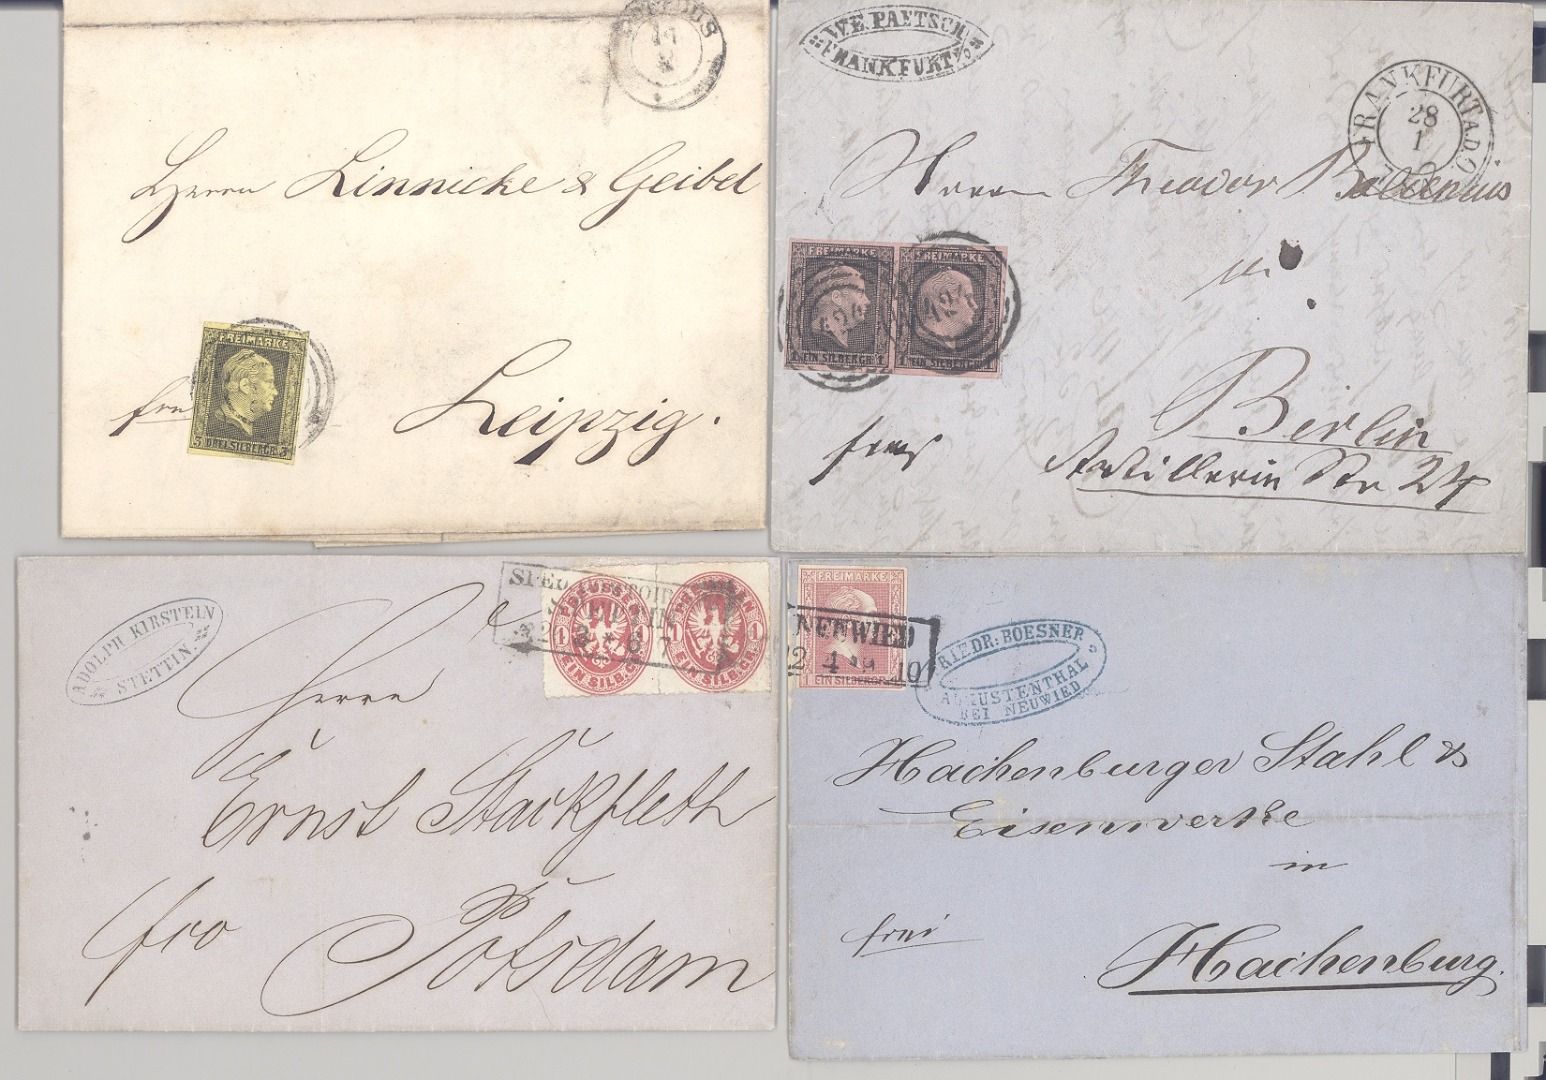 19
Herrn Linnicke & Geibel
FREIMARKE
3 DREI SILBERGR. 3
Leipzig.
W.E. PAETSCH
FRANKFURT a/O
FRANKFURT A.D.O.
28
1
Herrn Theodor
FREIMARKE FREIMARKE
424 424
1 EIN SILBERGR. 1 1 EIN SILBERGR. 1
Berlin
franco
Artillerie Str 24
ADOLPH KIRSTEIN
STETTIN.
PREUSSEN PREUSSEN
1 1 1 1
EIN SILB.GR. EIN SILB.GR.
SPED.
STETTIN
Herrn
Ernst Stäckfleth
fro
Potsdam
FREIMARKE
1 EIN SILBERGR. 1
NEUWIED
22 4 10
FRIEDR: BOESNER
AUGUSTENTHAL
BEI NEUWIED
Hachenburger Stahl &
Eisenwerke
in
frei
Hachenburg.